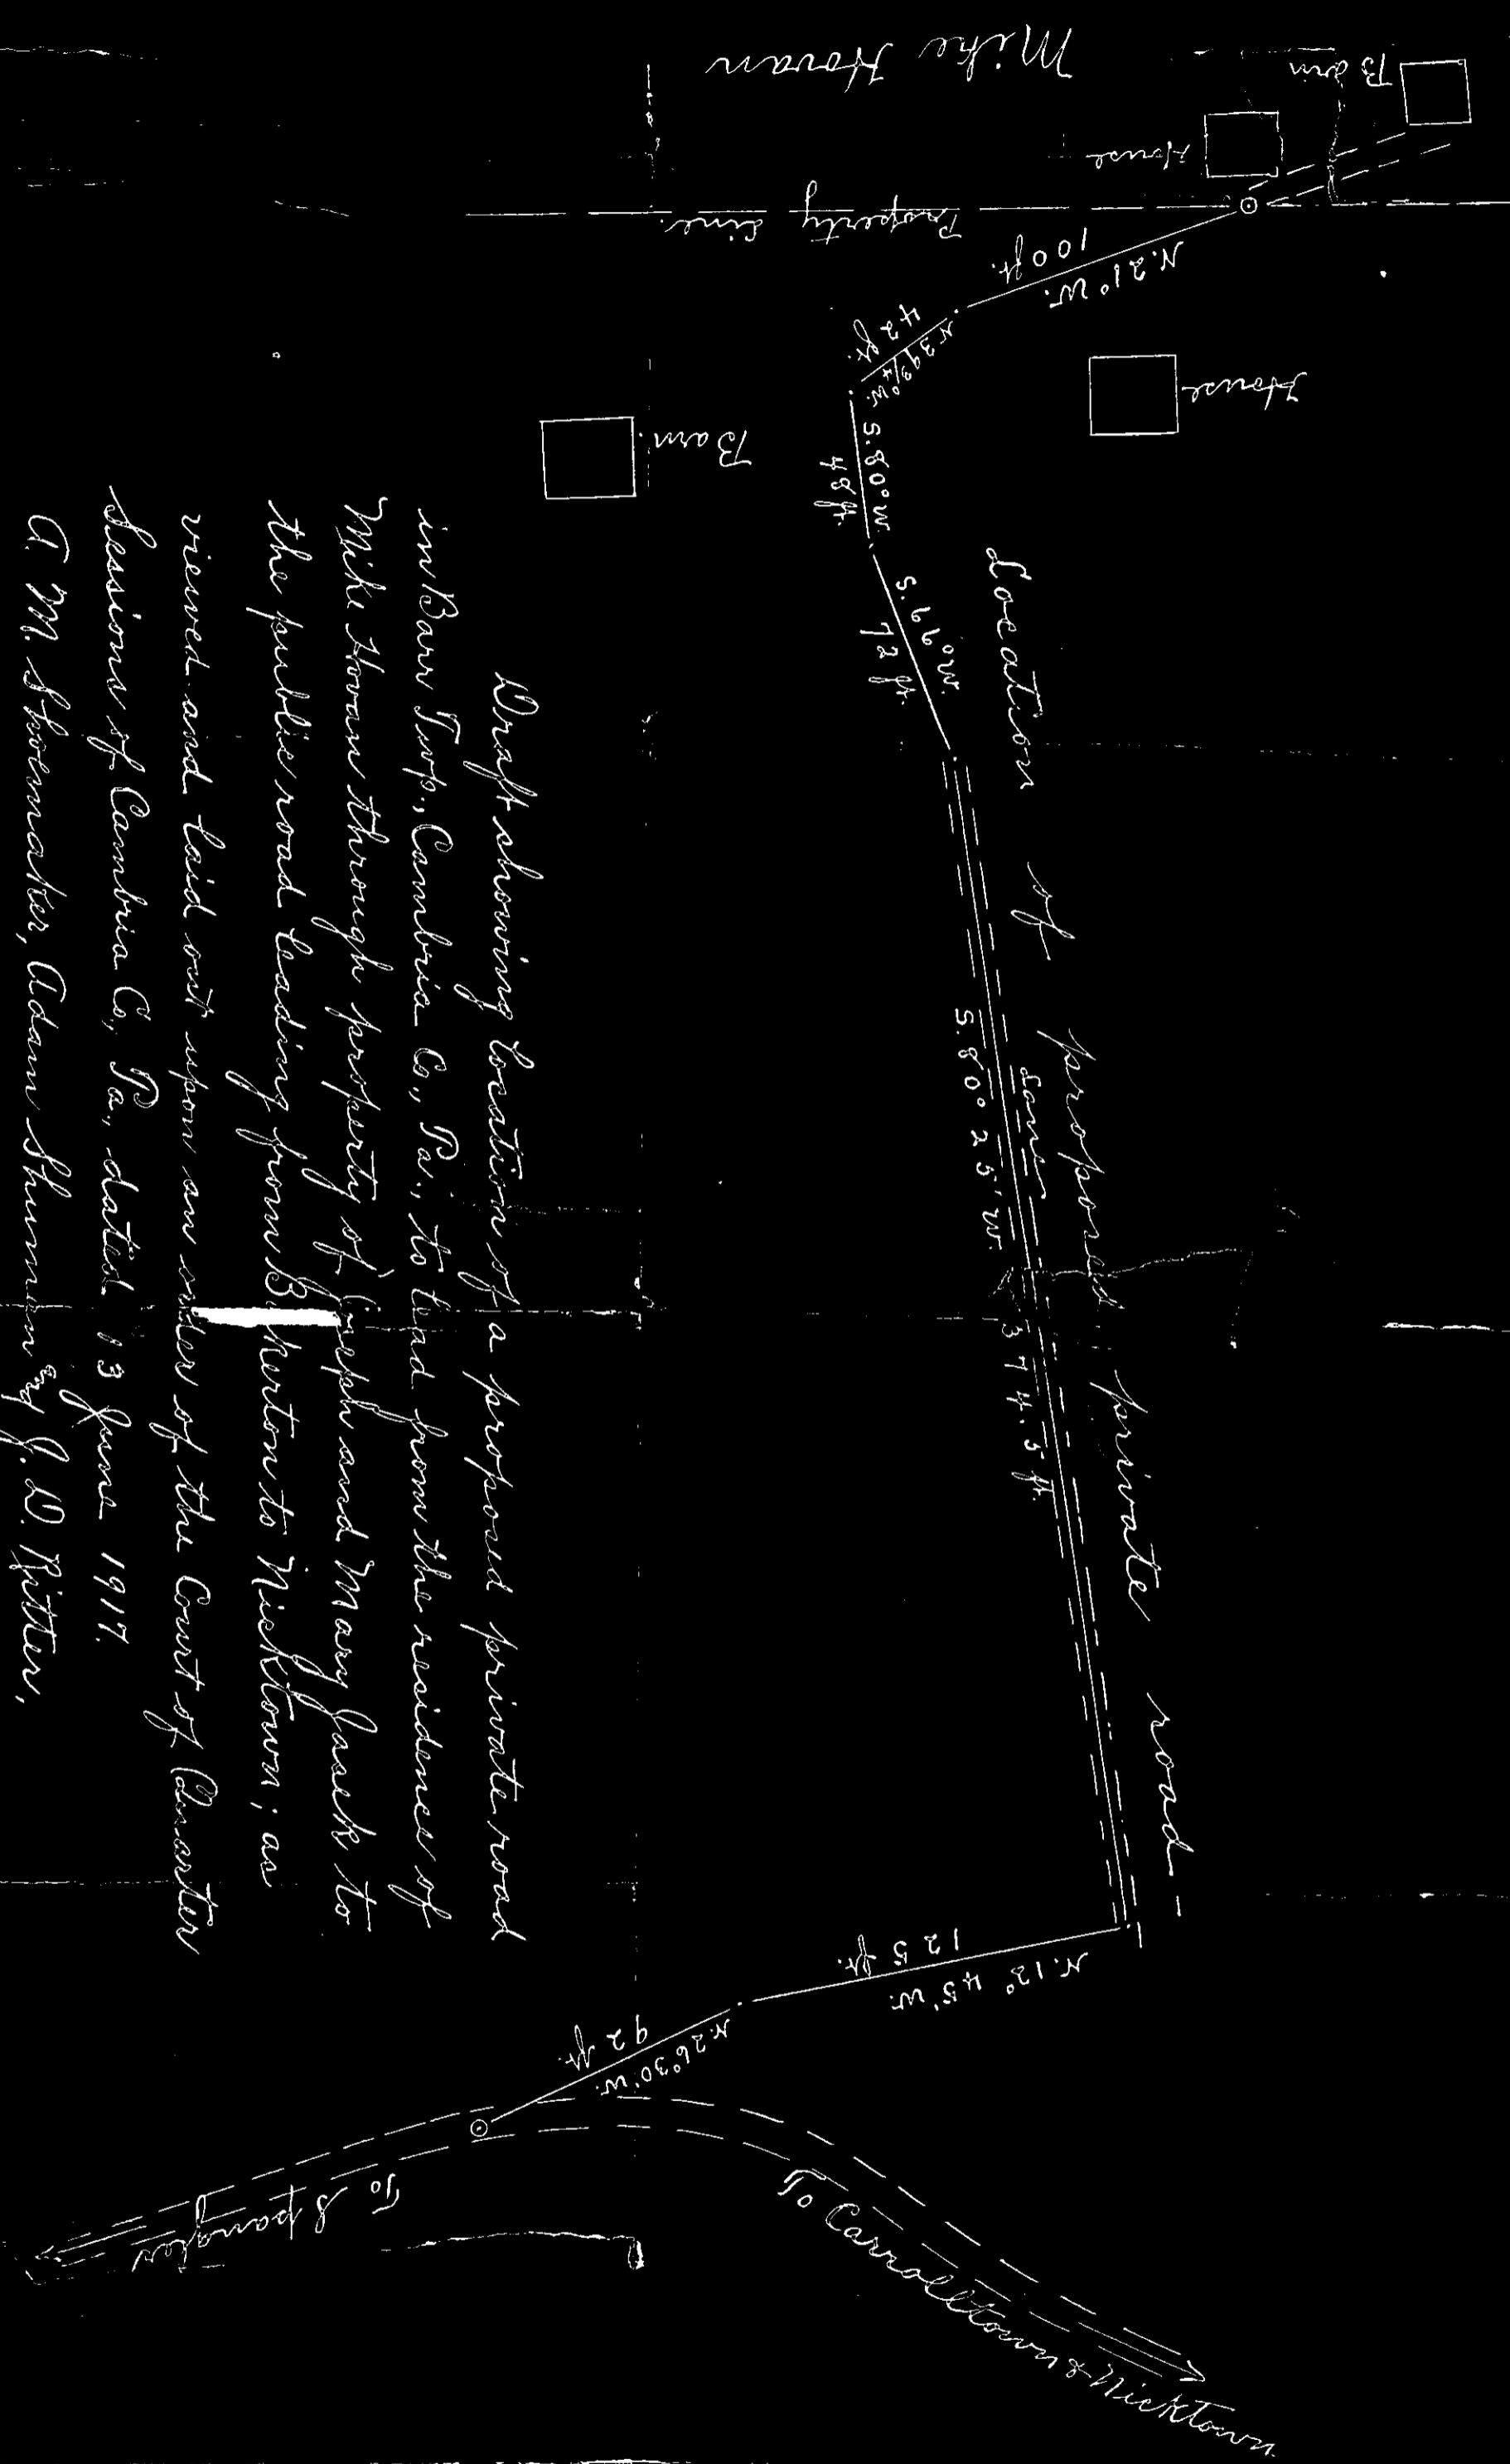 Mike Hovan
Barn
House
Property Line.
N. 21° W.
100 ft.
N 39 3/4° W.
42 ft.
S. 80° W.
48 ft.
S. 66° W.
72 ft.
House
Barn.
Location of proposed private road
Lane
S. 80° 25' W.
1374.5 ft.
N. 12° 45' W.
125 ft.
N. 26° 30' W.
92 ft.
To Spangler
To Carrolltown & Nicktown
Draft showing location of a proposed private road
in Barr Twp., Cambria Co., Pa., to lead from the residence of
Mike Hovan through property of Joseph and Mary Jasek to
the public road leading from B kerton to Nicktown; as
viewed and laid out upon an order of the Court of Quarter
Sessions of Cambria Co., Pa., dated 13 June 1917.
A. M. Shoemaker, Adam Shuman and J. D. Ritter,